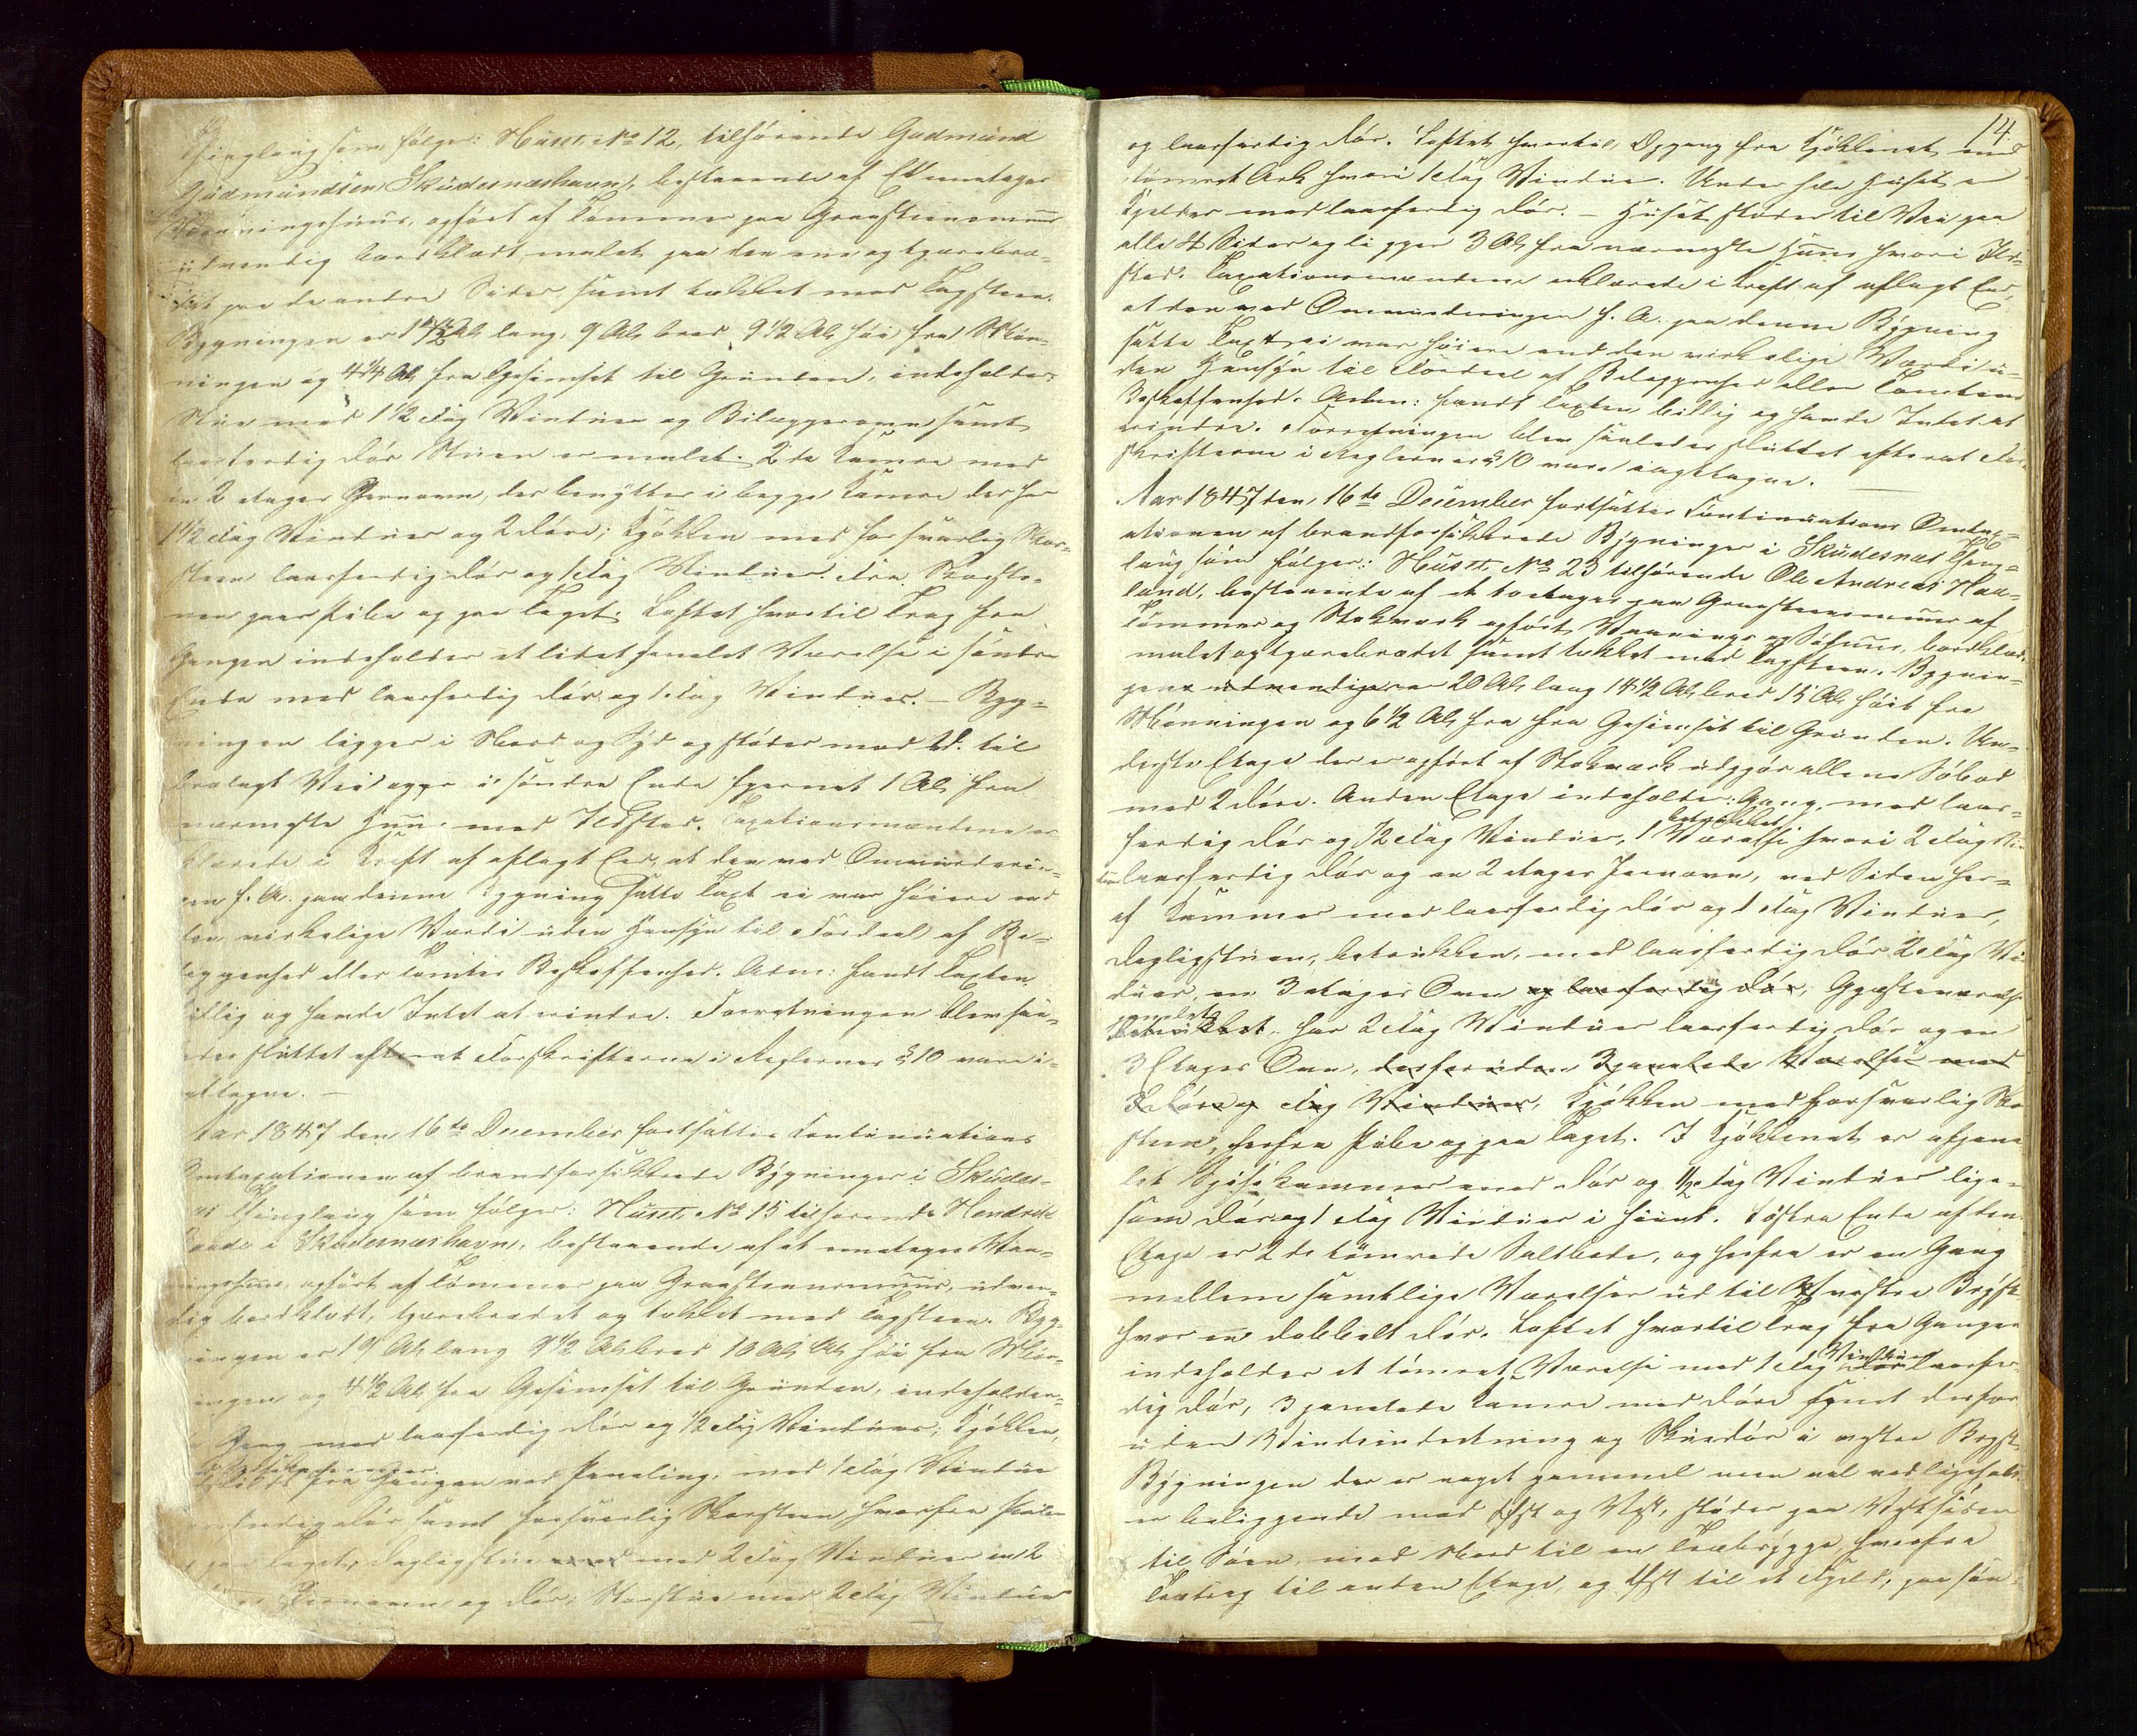 Thinglaug som følger: Huset No 12, tilhørende Gudmund
Gudmundsen Skudesnæshavn, bestaaende af Et eenetages
Vaaningshuus, opført af Tømmer paa Graasteensmuur
udvendig bordklædt, malet paa den ene og tjærebræ-
det paa de andre Sider samt tækket med Tagsteen.
Bygningen er Al. lang, 9 Al. bred, 9 1/2 Al. høi fra Møn-
ningen og 4 1/4 Al. fra Gesimset til Grunden, indeholder:
Stue med 1 1/2 Fag Vinduer og Bilæggerovn samt
laasfærdig Dør Stuen er malet. 2de Kamre med
en 2 etages Jernovn, der benyttes i begge Kamre der har
1 1/2 Fag Vinduer og 2 Døre; Kjøkken med forsvarlig Skor-
steen laasfærdig Dør og 1 Fag Vinduer. Fra Skorste-
nen gaar Pibe op paa Taget. Loftet hvortil Trap fra
Gangen indeholder et lidet panelet Værelse i søndre
Ende med laasfærdig Dør og 1 Fag Vinduer. – Byg-
ningen ligger i Nord og Syd og støder mod til
brolagt Vei og er i søndre Ende fjernet 1 Al. fra
nærmeste Huus med Ildsted. Taxationsmændene er-
klærede i Kraft af aflagt Eed, at den ved Omvurderin-
gen f. A. paa denne Bygning satte Taxt ei var høiere end
den virkelige Værdi uden Hensyn til Fordeel af Be-
liggenhed eller Tomtens Beskaffenhed. Adm: fandt Taxten
billig og havde Intet at erindre. Forretningen blev saa-
ledes sluttet efterat Forskrifterne i Reglernes § 10 vare i-
agttagne. –
Aar 1847 den 16de December fortsattes Continuations
Omtaxationen af brandforsikkrede Bygninger i Skudes-
næs Thinglaug som følger: Huset No 15 tilhørende Hendrik
i Skudesnæshavn, bestaaende af et eenetages Vaa-
ningshuus, opført af Tømmer paa Graasteensmuur, udven-
dig bordklædt, tjærebrædet og tækket med Tagsteen. Byg-
ningen er 19 Al. lang 9 1/2 Al. bred 10 Al. høi fra Møn-
ningen og 4 1/2 Al. fra Gesimset til Grunden, indeholder:
Gang med laasfærdig Dør og 1/2 Fag Vinduer; Kjøkken,
fra Gangen ved Paneling, med 1 Fag Vindue
laasfærdig Dør samt forsvarlig Skorsteen hvorfra Pibe
op paa Taget; Dagligstue med 2 Fag Vinduer en 2
Jernovn og Dør; Storstue med 2 Fag Vinduer
14
og laasfærdig Dør. Loftet hvortil Opgang fra Kjøkkenet med
tømret Ark hvori 1 Fag Vindue. Under hele Huset er
Kjelder med laasfærdig Dør. – Huset støder til Vei paa
alle 4 Sider og ligger 3 Al. fra nærmeste Huus hvori Ild-
sted. Taxationsmændene erklærede i Kraft af aflagt Eed,
at den ved Omvurderingen f. A. paa denne Bygning
satte Taxt ei var høiere end den virkelige Værdi u-
den Hensyn til Fordeel af Beliggenhed eller Tomtens
Beskaffenhed. Adm: fandt Taxten billig og havde Intet at
erindre. Forretningen blev saaledes sluttet efterat For-
skrifterne i Reglernes § 10 vare iagttagne. –
Aar 1847 den 16de December fortsattes Continuations Omtax-
ationen af brandforsikkrede Bygninger i Skudesnæs Thing-
laug som følger: Huset No 23 tilhørende Ole Andreas Haa-
land, bestaaende af et toetages paa Graasteensmuur af
Tømmer og Stokværk opført Vaanings og Søhuus, bordklæd,
malet og tjærebrædet samt tækket med Tagsteen. Bygnin-
gens udvendige er 20 Al. lang 14 1/2 Al. bred 15 Al. høit fra
Mønningen og 6 1/2 Al. fra fra Gesimset til Grunden. Un-
derste Etage der er opført af Stokværk udgjør allene Søbod
med 2 Døre. Anden Etage indeholder: Gang med laas-
færdig Dør og 1/2 Fag Vinduer, 1 betrukket Værelse hvori 2 Fag Vin-
duer laasfærdig Dør og en 2 etages Jernovn, ved Siden her-
af Kammer med laasfærdig Dør og 1 Fag Vinduer,
Dagligstuen, betrukken, med laasfærdig Dør 2 Fag Vin-
duer, en 3 etages Ovn og laasfærdig Dør, Gjæsteværelse
panelet betrukket har 2 Fag Vinduer laasfærdig Dør og en
3 Etages Ovn, desforuden 3 panelede Værelser med
3 Døre og Fag Vinduer, Kjøkken med forsvarlig Skor-
steen, herfra Pibe op paa Taget. I Kjøkkenet er afpane-
let Spisekammer med Dør og 1/2 Fag Vinduer lige-
som Dør og 1 Fag Vinduer i huset. I østre Ende af den
Etage er 2de tømrede Saltboder, og herfra er en Gang
mellem samtlige Værelser ud til vestre Bryst
hvor en dobbelt Dør. Loftet hvortil Trap fra Gangen
indeholder et tømret Værelse med 1 Fag Vinduer laasfær-
dig Dør, 3 panelede Kamre med Døre samt desfor-
uden Vindeindretning og Skuedør i vestre Bryst.
Bygningen der er noget gammel men vel vedligeholdt
er beliggende mod Øst og Vest, støder paa Vestsiden
til Søen, mod Nord til en Træbrygge, hvorfra
Trætrap til anden Etage, og Øst til et Fjeld; paa søn-